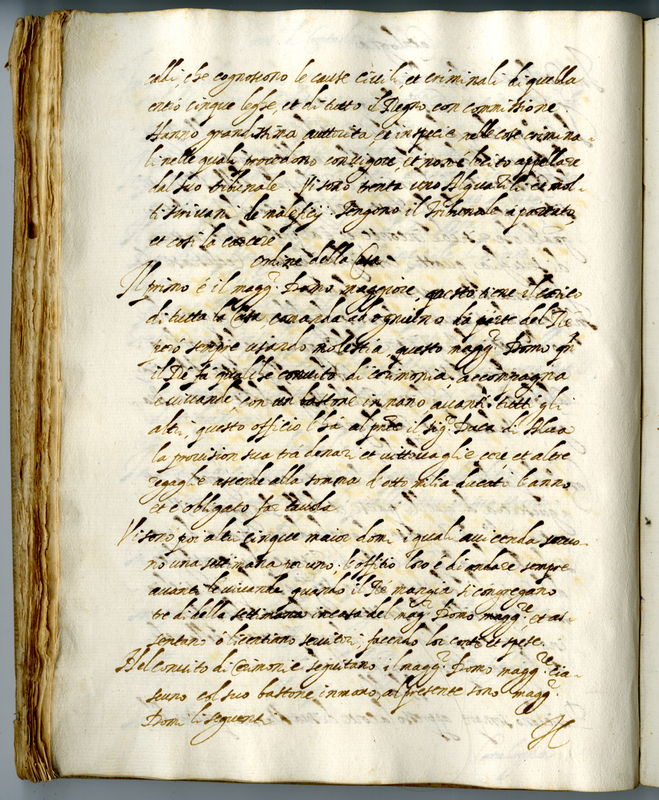 calli, che cognoscono le cause civili, et criminali di quella
corte cinque leghe, et di tutto il Regno con commissione
Hanno grandissima auttorita, et in specie nelle cose crimina-
li nelle quali procedono con rigore, et non è licito appellare
dal suo tribunale. Vi sono trenta uno Alguazili, et mol-
ti scrivani de maleficij. Tengono il tribunale a parte,
et così la carcere
Ordine della Casa
Il primo è il magg.r Domo maggiore, questo tiene il carico
di tutta la Casa comanda ad ogniuno da parte del Rè
però sempre usando modestia questo magg.r Domo qñ
il Rè fa qualche convito di cerimonia accompagna
le vivande con un bastone in mano avanti tutti gli
altri, questo officio l'hà al pñte il sig.r Duca di Alva
la provision sua tra denari et vittovaglie cere et altre
regaglie ascende alla somma d'otto milia ducati l'anno
et è obligato far tavola
Vi sono poi altri cinque maior domi i quali a vicenda servo-
no una settimana per uno. l'offitio loro è di andare sempre
avanti le vivande quando il Rè mangia si congregano
tre dì della settimana in casa del magg.r Domo magg.re et as-
sentano ò licentiano servitori, facendo lor conti et spese.
Nel convito di Cerimonie seguitano il magg.r Domo magg.re cia-
scuno col suo bastone in mano, al presente sono magg.r
Domi li seguenti